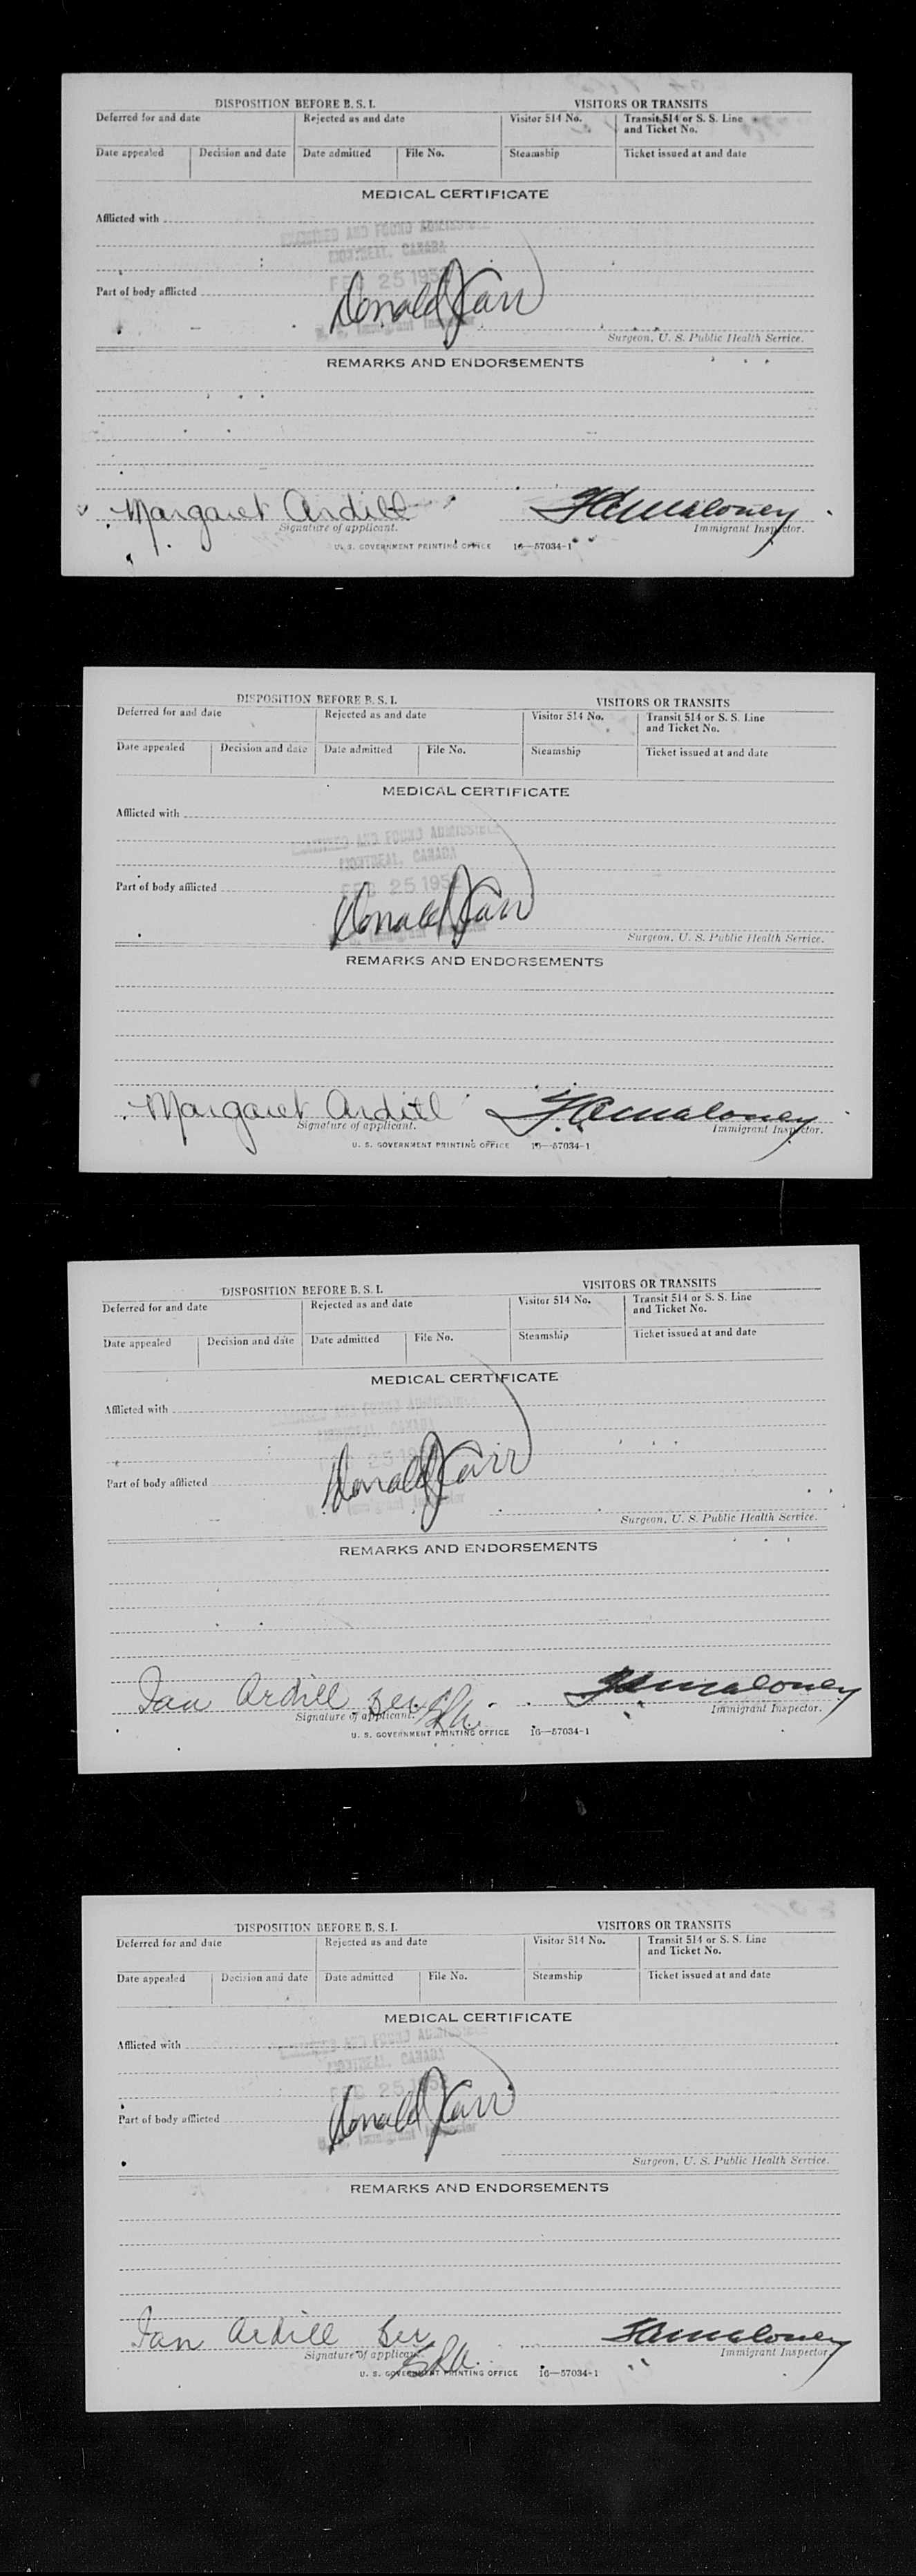 DISPOSITION BEFORE B. S. I. VISITORS OR TRANSITS
Deferred for and date Rejected as and date Visitor 514 No. Transit 514 or S. S. Line and Ticket No.
Date appealed Decision and date Date admitted File No. Steamship Ticket issued at and date
MEDICAL CERTIFICATE
Afflicted with
EXAMINED AND FOUND ADMISSIBLE
MONTREAL, CANADA
FEB 25 1952
Part of body afflicted Donald
Immigrant Inspector
Surgeon, U. S. Public Health Service.
REMARKS AND ENDORSEMENTS
Margaret Ardill Maloney
Signature of applicant. Immigrant Inspector.
U. S. GOVERNMENT PRINTING OFFICE 16—57034-1
DISPOSITION BEFORE B. S. I. VISITORS OR TRANSITS
Deferred for and date Rejected as and date Visitor 514 No. Transit 514 or S. S. Line and Ticket No.
Date appealed Decision and date Date admitted File No. Steamship Ticket issued at and date
MEDICAL CERTIFICATE
Afflicted with
EXAMINED AND FOUND ADMISSIBLE
MONTREAL, CANADA
FEB 25 1952
Part of body afflicted Donald
Surgeon, U. S. Public Health Service.
REMARKS AND ENDORSEMENTS
Margaret Ardill Maloney
Signature of applicant. Immigrant Inspector.
U. S. GOVERNMENT PRINTING OFFICE 16—57034-1
DISPOSITION BEFORE B. S. I. VISITORS OR TRANSITS
Deferred for and date Rejected as and date Visitor 514 No. Transit 514 or S. S. Line and Ticket No.
Date appealed Decision and date Date admitted File No. Steamship Ticket issued at and date
MEDICAL CERTIFICATE
Afflicted with
EXAMINED AND FOUND ADMISSIBLE
MONTREAL, CANADA
FEB 25 19
Part of body afflicted Donald
Immigrant Inspector
Surgeon, U. S. Public Health Service.
REMARKS AND ENDORSEMENTS
Ian Ardill Maloney
Signature of applicant. Immigrant Inspector.
U. S. GOVERNMENT PRINTING OFFICE 16—57034-1
DISPOSITION BEFORE B. S. I. VISITORS OR TRANSITS
Deferred for and date Rejected as and date Visitor 514 No. Transit 514 or S. S. Line and Ticket No.
Date appealed Decision and date Date admitted File No. Steamship Ticket issued at and date
MEDICAL CERTIFICATE
Afflicted with
EXAMINED AND FOUND ADMISSIBLE
MONTREAL, CANADA
FEB 25 1952
Part of body afflicted Donald
Immigrant Inspector
Surgeon, U. S. Public Health Service.
REMARKS AND ENDORSEMENTS
Ian Ardill Maloney
Signature of applicant. Immigrant Inspector.
U. S. GOVERNMENT PRINTING OFFICE 16—57034-1